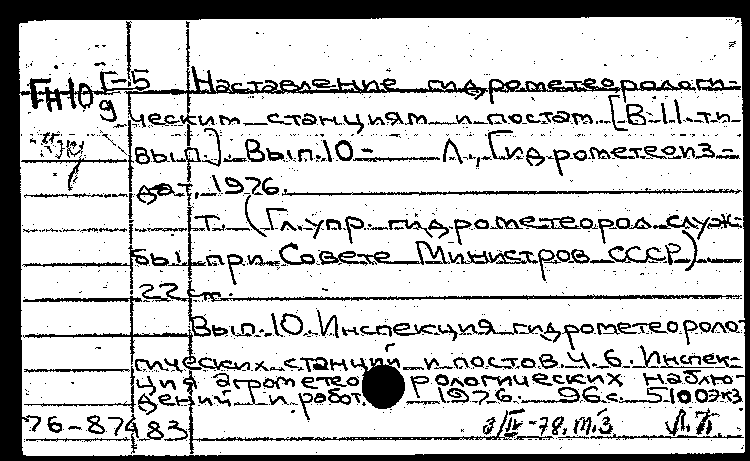 Гн10 Г-5 Наставление гидрометеорологи-
д ческим станциям и постам [В 11.ти
вып.]. Вып.10- Л., Гидрометеоиз-
дат, 1976.
т. (Гл.упр. гидрометеорол.служ-
бы при Совете Министров СССР).
22см.
Вып.10.Инспекция гидрометеороло-
гических станций и постов.Ч.6. Инспек-
ция агрометеорологических наблю-
дений и работ. 1976. 96с. 5100экз
76-87483 3/IV-78.т.3. Л.П.